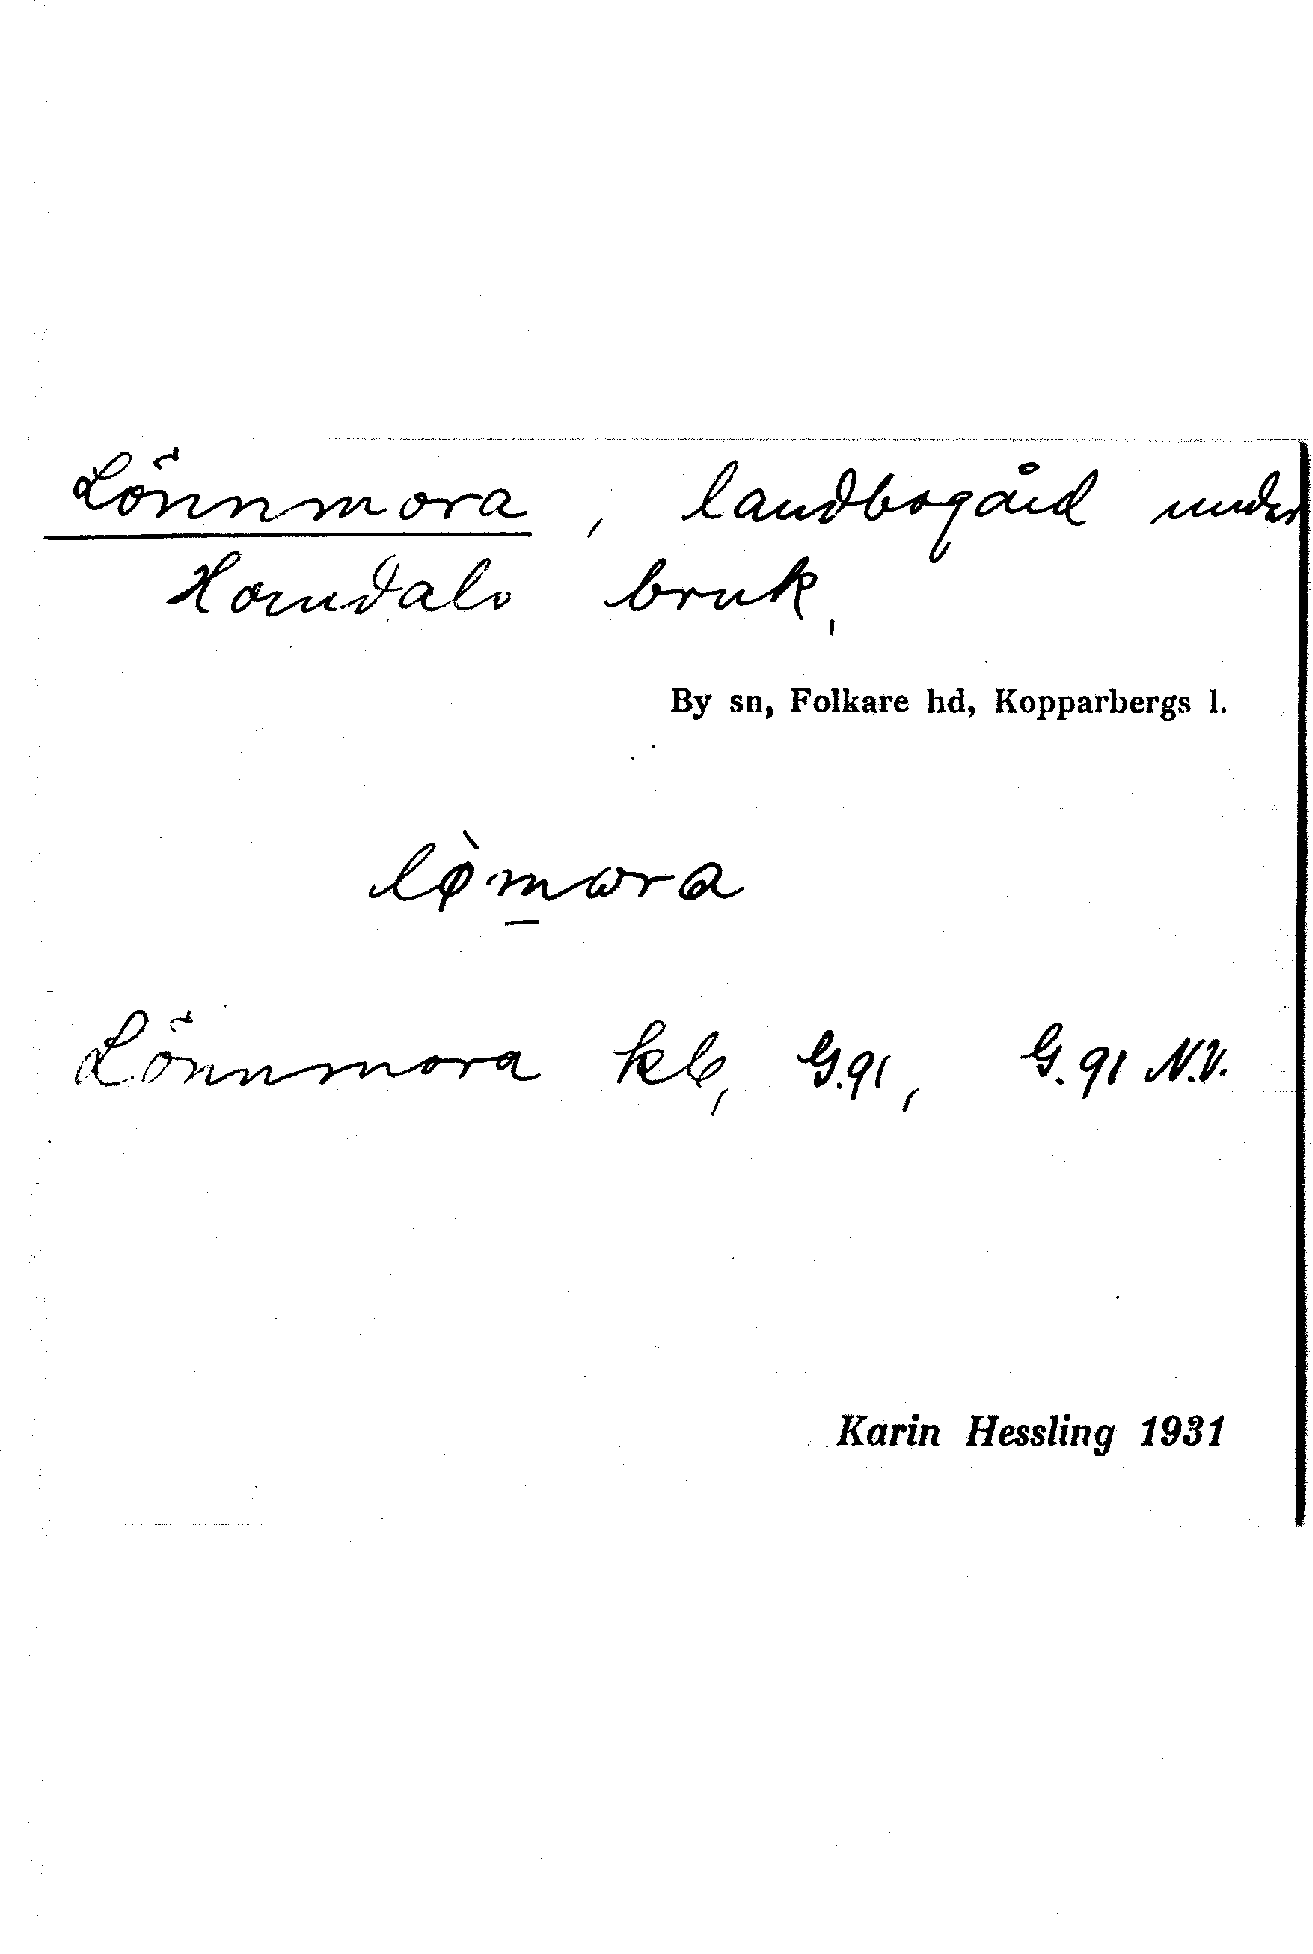 Lönnmora, landbogård under
Horndals bruk,
By sn, Folkare hd, Kopparbergs l.
lø̀mωra
Lönnmora kb, G.91, G.91 N.V.
Karin Hessling 1931